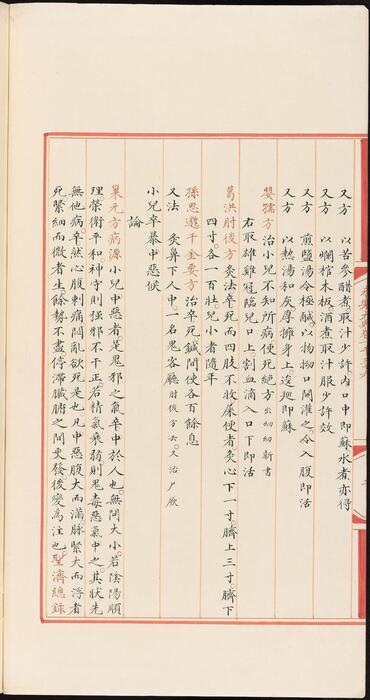 又方　以苦參醋煮取汁少許內口中即蘇水煮亦得
又方　以爛棺木板酒煮取汁服少許效
又方　煎鹽湯令極鹹以物拗口開灌之令入腹即活
又方　以熱湯和灰厚擁身上逡巡即蘇
嬰孺方　治小兒不知所病便死絕方出幼幼新書
右取雄雞冠臨兒口上割血滴入口下即活
葛洪肘後方　灸法卒死而四肢不收屎便者灸心下一寸臍上三寸臍下
四寸各一百壯兒小者隨年
孫思邈千金要方　治卒死鍼間使各百餘息
又法　灸鼻下人中一名鬼客廳肘後方云又治尸厥
小兒卒暴中惡候
論
巢元方病源　小兒中惡者是鬼邪之氣卒中於人也無問大小若陰陽順
理榮衛平和神守則強邪不干正若精氣衰弱則鬼毒惡氣中之其狀先
無他病卒然心腹刺痛悶亂欲死是也凡中惡腹大而滿脉緊大而浮者
死緊細而微者生餘勢不盡停滯臟腑之間更發後變為注也聖濟總錄